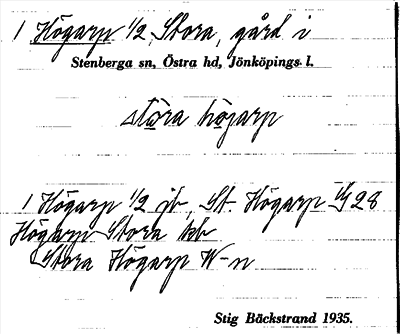 1 Högarp 1/2, Stora, gård i
Stenberga sn, Östra hd, Jönköpings l.
störa högarp
1 Högarp 1/2 jb, St. Högarp G 28
Högarp Stora
Stora Högarp W-n
Stig Bäckstrand 1935.